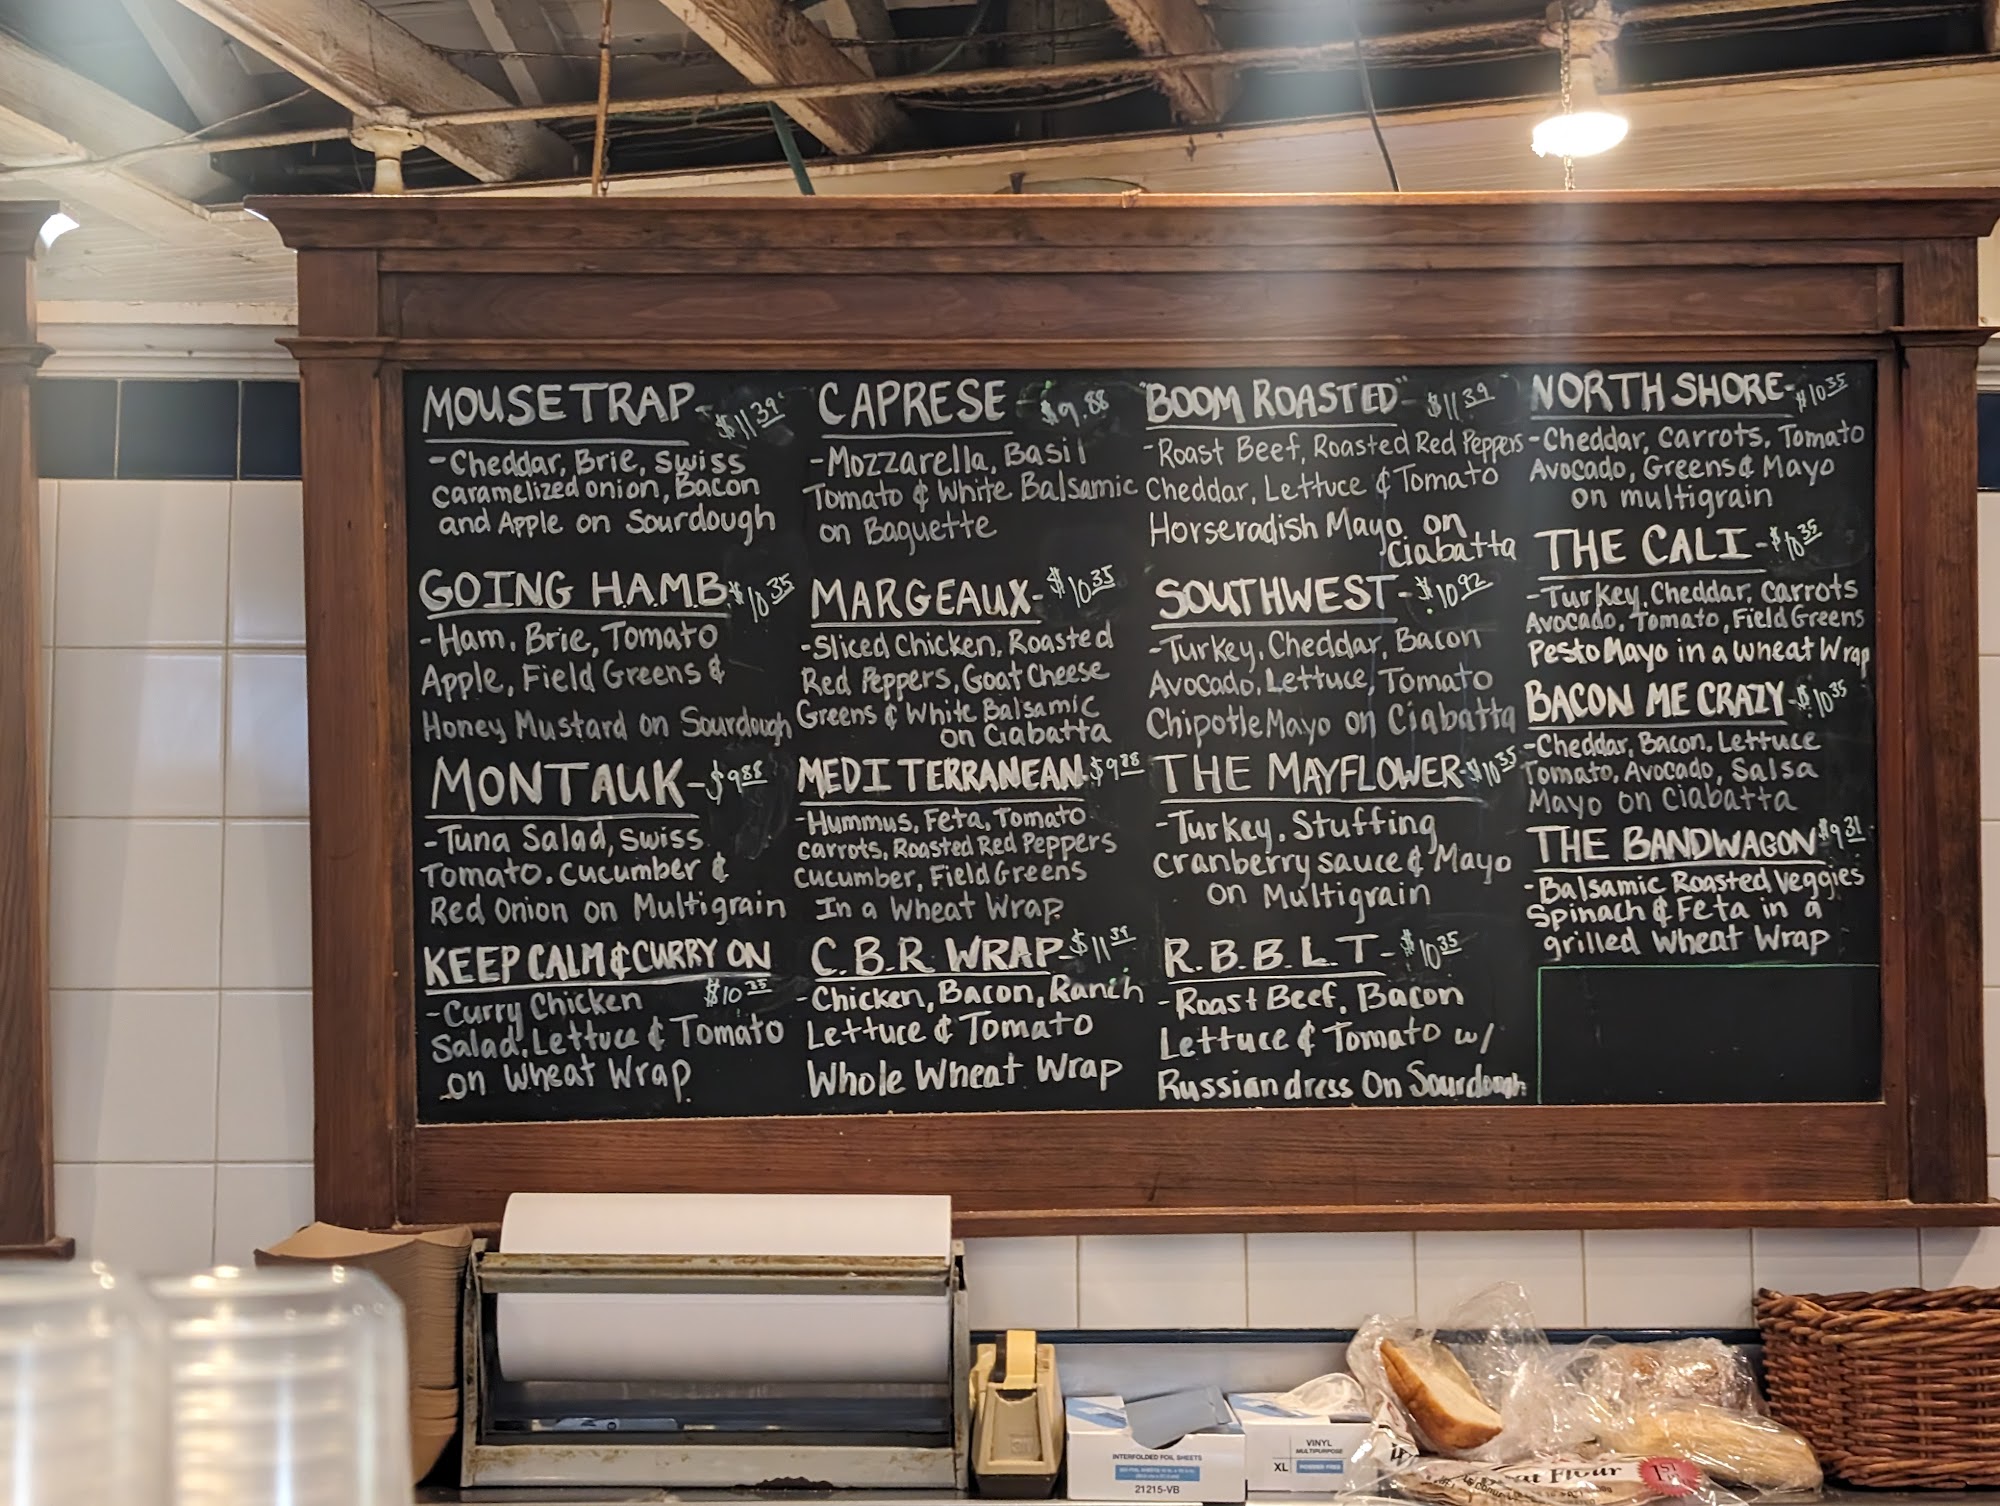 MOUSETRAP - $11.39
-Cheddar, Brie, Swiss
Caramelized onion, Bacon
and Apple on Sourdough
GOING H.A.M.B. $10.35
-Ham, Brie, Tomato
Apple, Field Greens &
Honey Mustard on Sourdough
MONTAUK - $9.88
-Tuna Salad, Swiss
Tomato, Cucumber &
Red Onion on Multigrain
KEEP CALM & CURRY ON
-Curry Chicken $10.35
Salad, Lettuce & Tomato
on Wheat Wrap
CAPRESE - $9.88
-Mozzarella, Basil
Tomato & White Balsamic
on Baguette
MARGEAUX - $10.35
-Sliced Chicken, Roasted
Red Peppers, Goat Cheese
Greens & White Balsamic
on Ciabatta
MEDITERRANEAN $9.88
-Hummus, Feta, Tomato
Carrots, Roasted Red Peppers
Cucumber, Field Greens
In a Wheat Wrap
C.B.R. WRAP - $11.39
-Chicken, Bacon, Ranch
Lettuce & Tomato
Whole Wheat Wrap
"BOOM ROASTED" - $11.39
-Roast Beef, Roasted Red Peppers
Cheddar, Lettuce & Tomato
Horseradish Mayo on
Ciabatta
SOUTHWEST - $10.92
-Turkey, Cheddar, Bacon
Avocado, Lettuce, Tomato
Chipotle Mayo on Ciabatta
THE MAYFLOWER - $10.35
-Turkey, Stuffing
Cranberry sauce & Mayo
on Multigrain
R.B.B.L.T - $10.35
-Roast Beef, Bacon
Lettuce & Tomato w/
Russian dress On Sourdough
NORTH SHORE - $10.35
-Cheddar, Carrots, Tomato
Avocado, Greens & Mayo
on multigrain
THE CALI - $10.35
-Turkey, Cheddar, Carrots
Avocado, Tomato, Field Greens
Pesto Mayo in a Wheat Wrap
BACON ME CRAZY - $10.35
-Cheddar, Bacon, Lettuce
Tomato, Avocado, Salsa
Mayo on Ciabatta
THE BANDWAGON $9.31
-Balsamic Roasted Veggies
Spinach & Feta in a
grilled Wheat Wrap
INTERFOLDED FOIL SHEETS
21215-VB
VINYL
MULTIPURPOSE
XL POWDER FREE
Flour